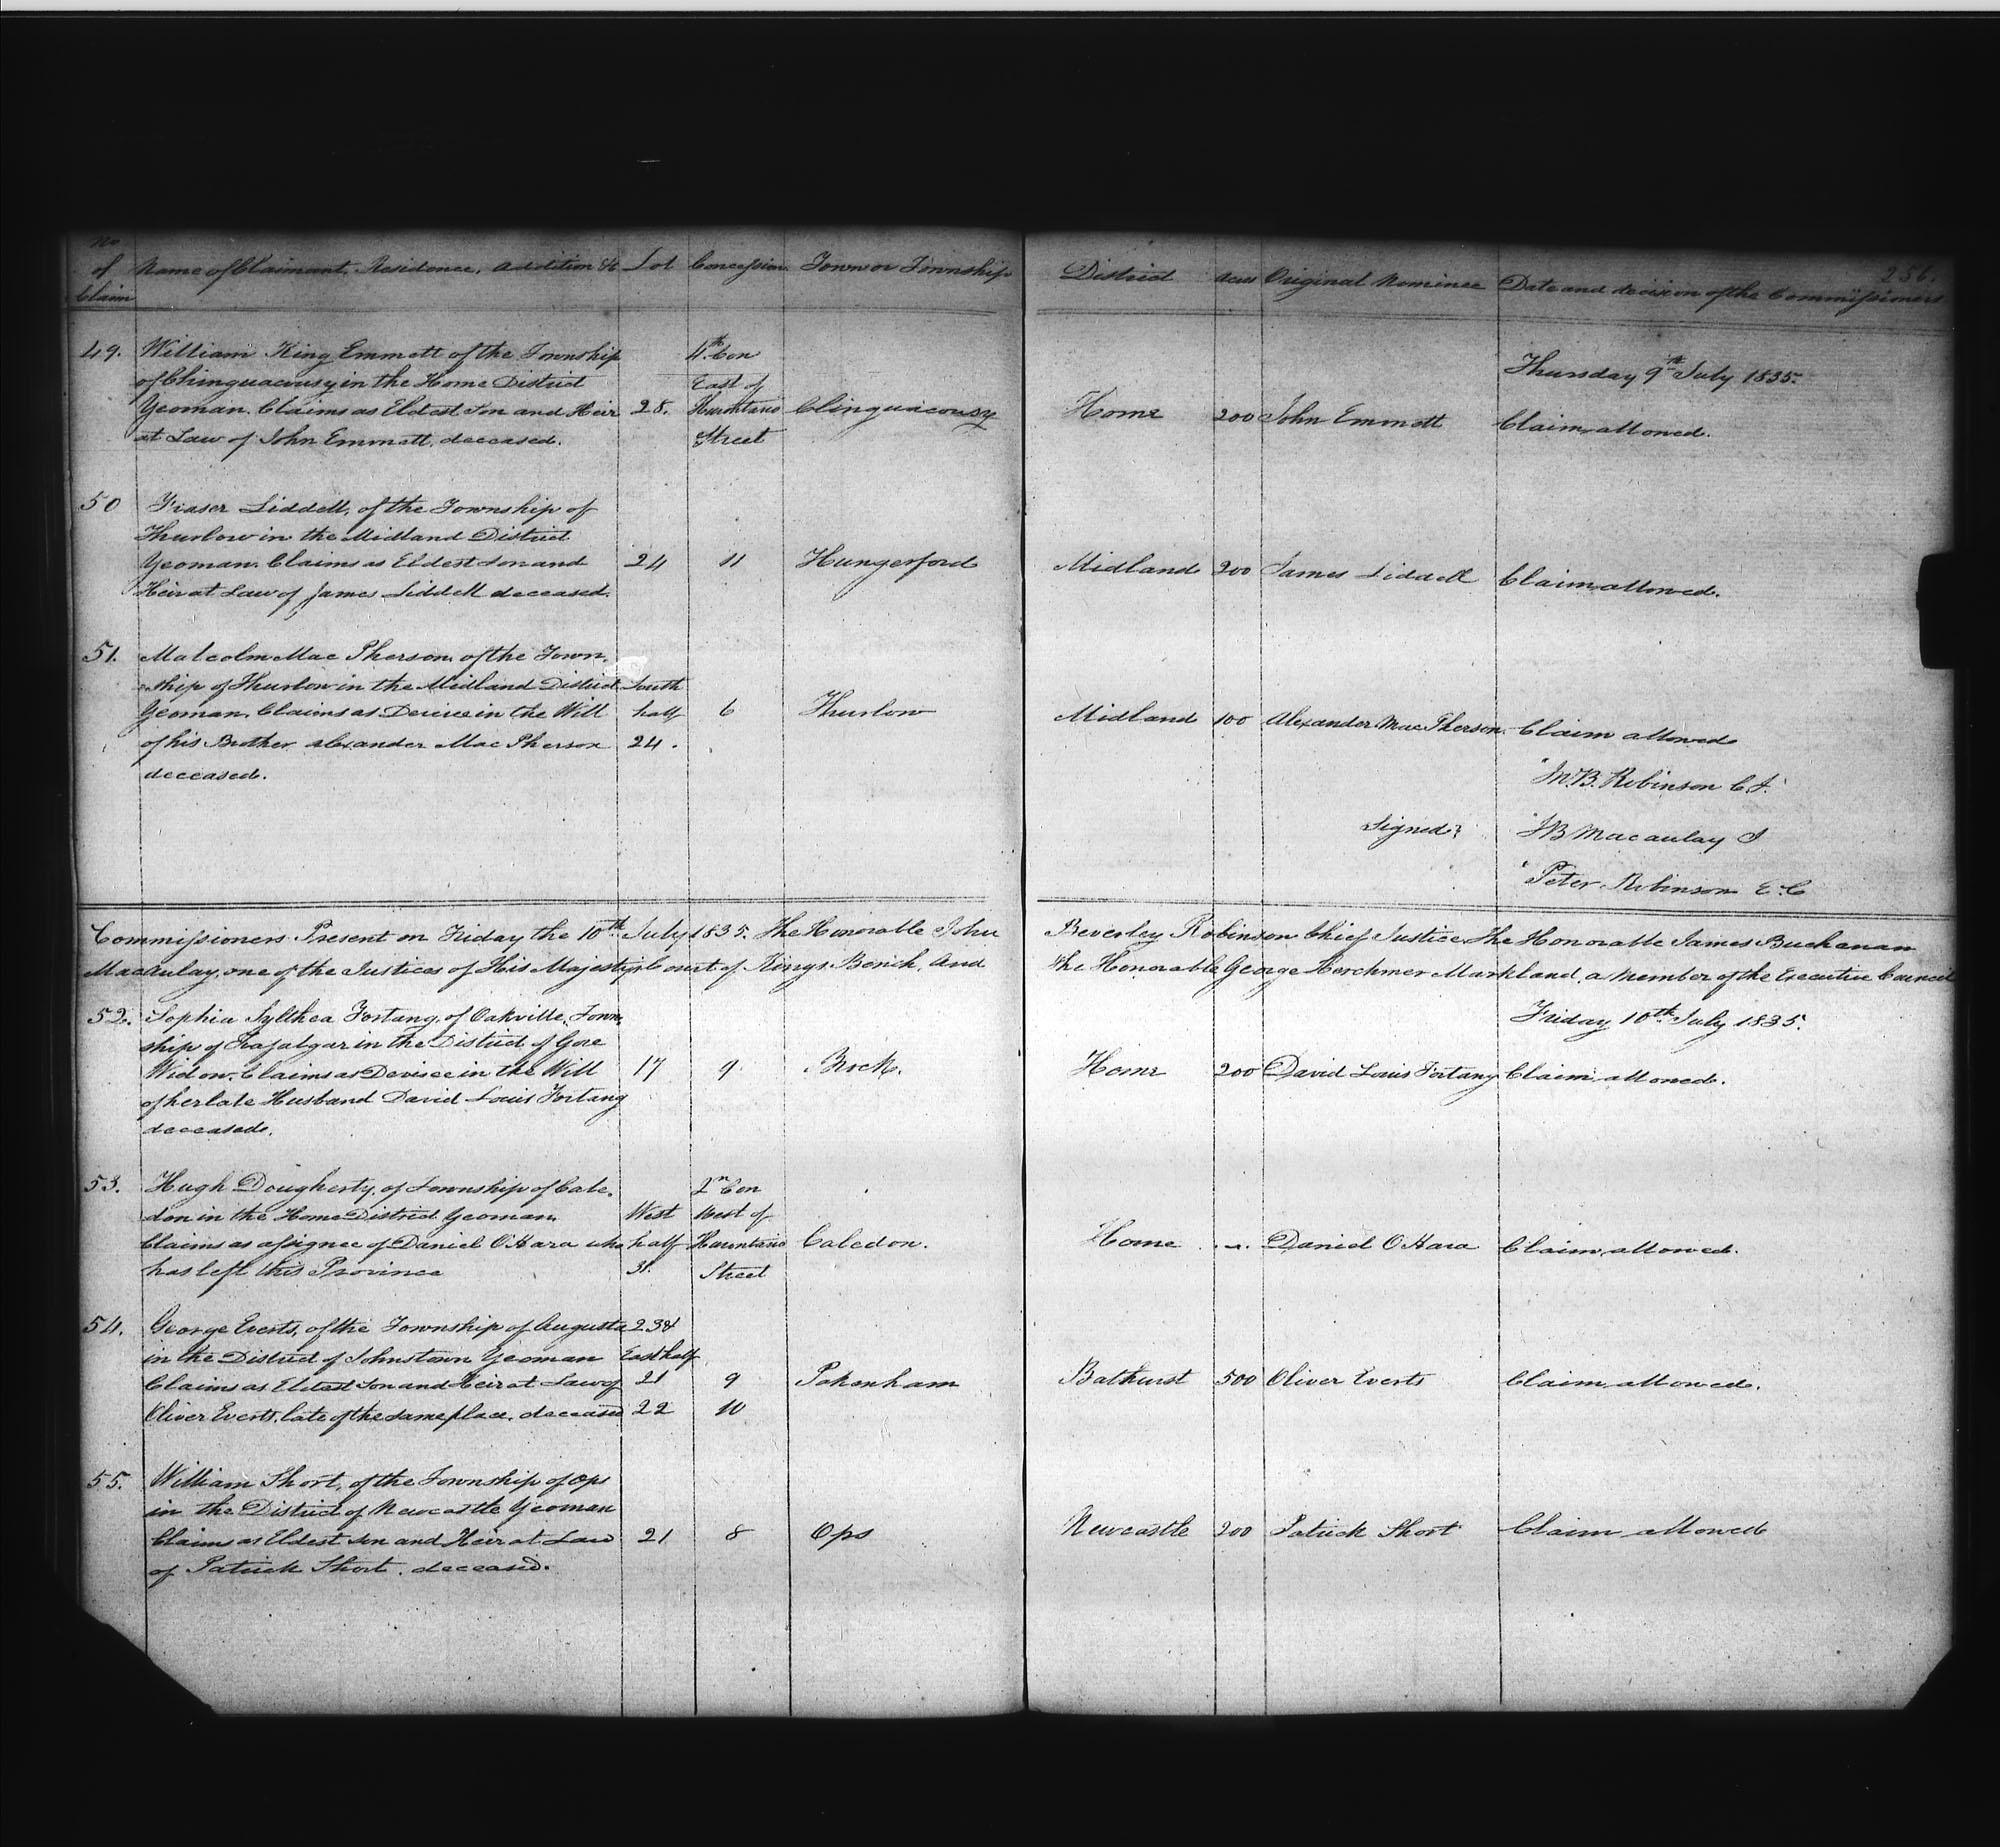 No
of
Claim
Name of Claimant, Residence, Addition &c
Lot
Concession
Town or Township
District
Acres
Original Nominee
Date and decision of the Commissioners
256.
49.
William King Emmett of the Township
of Chinguacousy in the Home District
Yeoman. Claims as Eldest Son and Heir
at Law of John Emmett, deceased.
28.
4th Con
East of
Hurontario
Street
Chinguacousy
Home
200
John Emmett
Thursday 9th July 1835.
Claim allowed.
50
Fraser Liddell, of the Township of
Thurlow in the Midland District
Yeoman. Claims as Eldest Son and
Heir at Law of James Liddell deceased.
24
11
Hungerford
Midland
200
James Liddell
Claim allowed.
51.
Malcolm Mac Pherson of the Town-
ship of Thurlow in the Midland District
Yeoman. Claims as Devisee in the Will
of his Brother Alexander Mac Pherson
deceased.
South
half
24.
6
Thurlow
Midland
100
Alexander Mac Pherson.
Claim allowed
"Jno. B. Robinson C.J.
Signed
"JB Macaulay J
"Peter Robinson E.C
Commissioners Present on Friday the 10th July 1835. The Honorable John Beverley Robinson Chief Justice The Honorable James Buchanan
Macaulay, one of the Justices of His Majestys Court of Kings Bench, And The Honorable George Herchmer Markland, a member of the Executive Council
52.
Sophia Fortang, of Oakville, Town-
ship of Trafalgar in the District of Gore
Widow. Claims as Devisee in the Will
of her late Husband David Louis Fortang
deceased.
17
9
Brock.
Home
200
David Louis Fortang
Friday 10th July 1835.
Claim allowed.
53.
Hugh Dougherty, of Township of Cale-
don in the Home District Yeoman.
Claims as assignee of Daniel O'Hara who
has left this Province
West
half
31.
2n Con
West of
Hurontario
Street
Caledon.
Home
Daniel O Hara
Claim allowed.
54.
George Everts, of the Township of Augusta
in the District of Johnstown Yeoman
Claims as Eldest Son and Heir at Law of
Oliver Everts, late of the same place, deceased
23&
East half
21
22
9
10
Pakenham
Bathurst
500
Oliver Everts
Claim allowed.
55.
William Short, of the Township of Ops
in the District of Newcastle Yeoman
Claims as Eldest Son and Heir at Law
of Patrick Short, deceased.
21
8
Ops
Newcastle
200
Patrick Short
Claim allowed